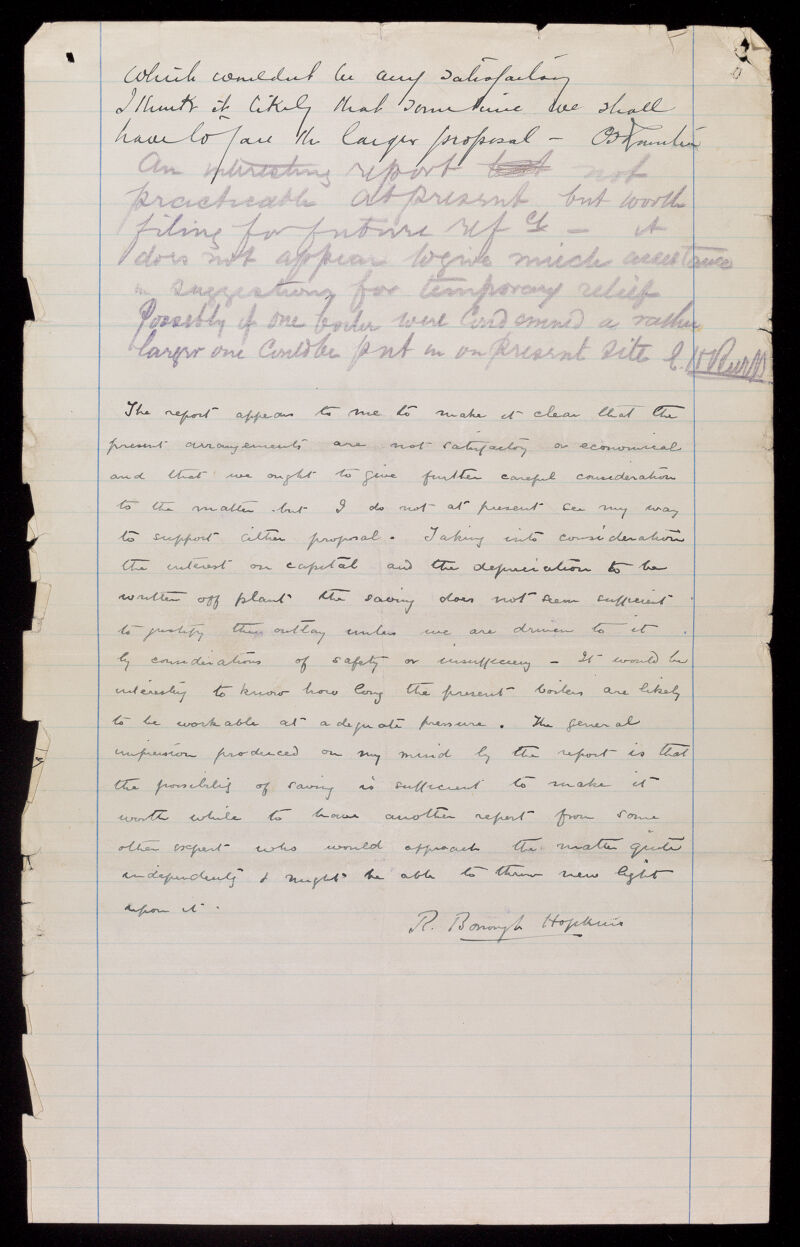 which wouldn't be any satisfactory
I think it likely that some time we shall
have to face the larger proposal –
An interesting report but not
practicable at present but worth
filing for future ref ce – it
does not appear to give much assistance
in suggestions for temporary relief
Possibly if one boiler were condemned a rather
larger one could be put in on present site
The report appears to me to make it clear that the
present arrangements are not satisfactory or economical
and that we ought to give further careful consideration
to the matter but I do not at present see my way
to support either proposal. Taking into consideration
the interest on capital and the depreciation to be
written off plant the saving does not seem sufficient
to justify the outlay unless we are driven to it
by considerations of safety or insufficiency – It would be
interesting to know how long the present boilers are likely
to be workable at adequate pressure. The general
impression produced on my mind by the report is that
the possibility of saving is sufficient to make it
worth while to have another report from some
other expert who would approach the matter quite
independently & might be able to throw new light
upon it.
R. Borrough Hopkins